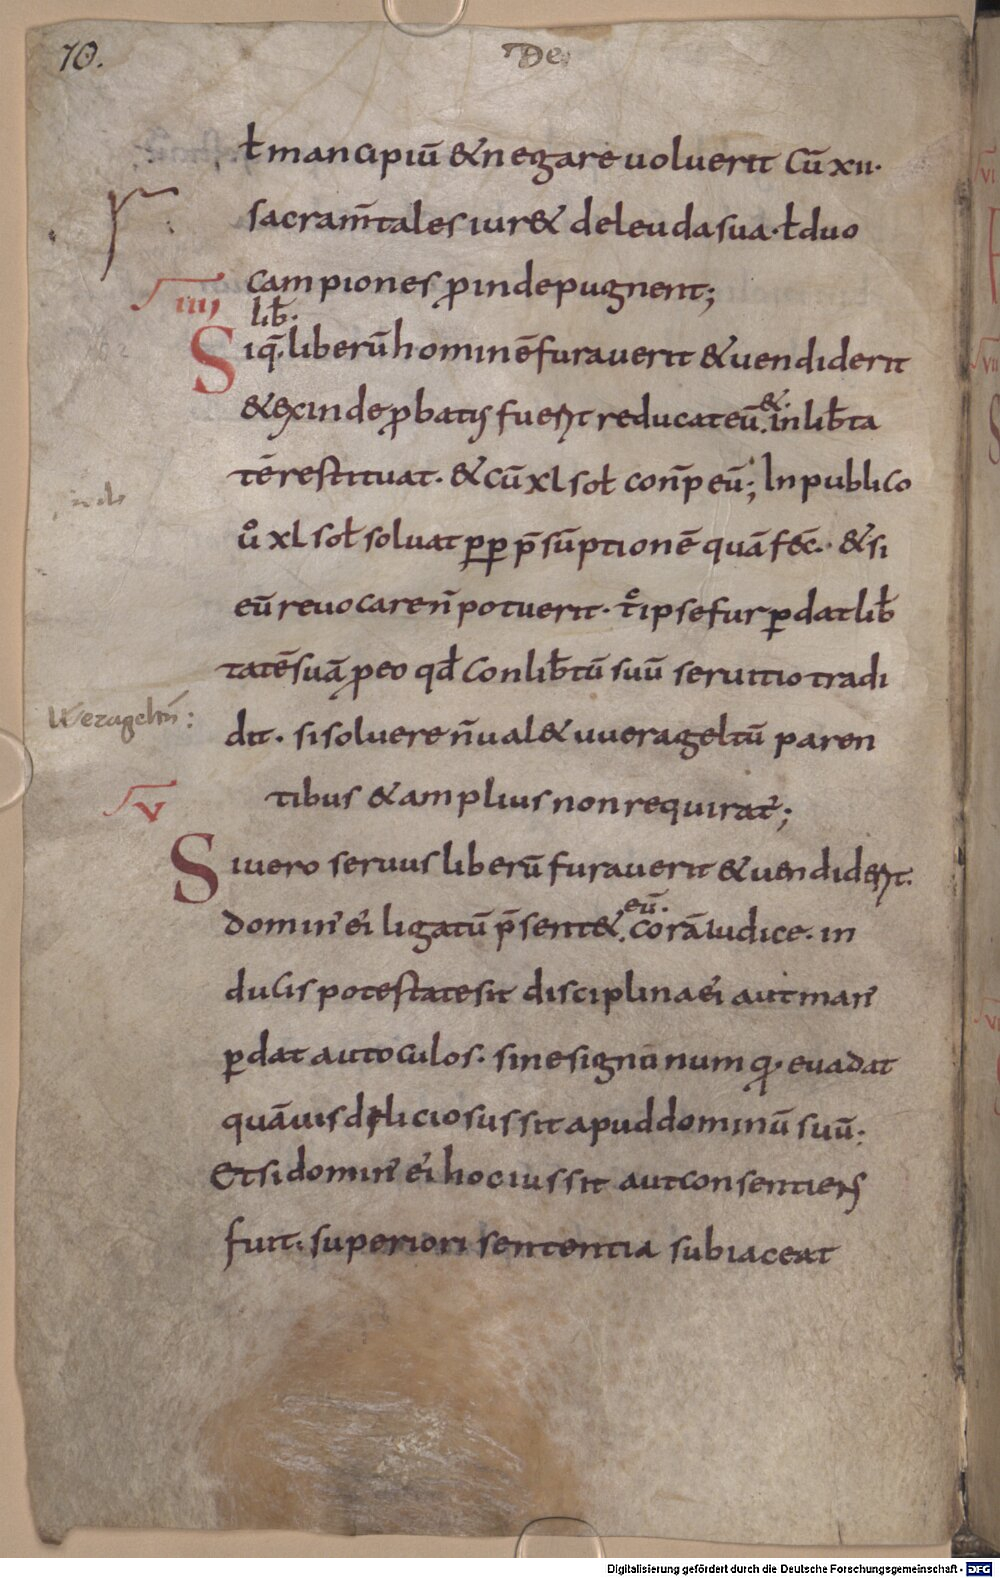 10.
De
ł mancipiū & negare uoluerit cū xii·
sacram̄tales iur& deleuda sua· ł duo
campiones ꝓinde pugnent;
iiij
lib̄·
Siq̄· liberū hominē furauerit & uendiderit
& exinde ꝓbatus fuerit reducat eū &· in lib̄ta
tē restituat· & cū xl soł con̄p eū; In publico
uͦ xl soł soluat ꝑꝑ p̄sūptionē quā fēc·· & si
eū reuocare n̄ potuerit· tͦ ipse fur ꝑdat lib̄
tatē suā ꝓ eo qđ conlib̄tū suū seruitio tradi
dit· si soluere n̄ ual& uuerageltū paren
Weragelt̄m:
tibus & amplius non requirat;
v
Si uero seruus liberū furauerit & uendiderit·
domin' ei' ligatū p̄sent& eū· corā iudice· in
ducis potestate sit disciplina ei' aut man'
ꝑdat aut oculos· sine signū numqͣ· euadat
quāuis deliciosus sit apud dominū suū;
Et si domin' ei' hoc iussit aut consentiens
fuit· superiori sententia subiaceat
Digitalisierung gefördert durch die Deutsche Forschungsgemeinschaft - DFG